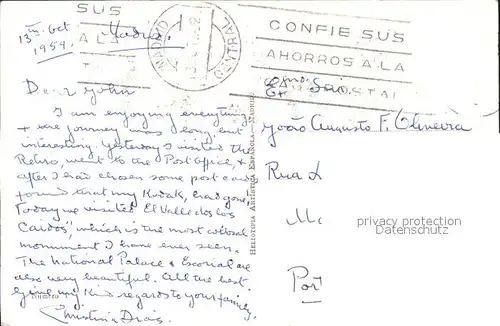 13th Oct.
1959.
Madrid
SUS
A LA
MADRID
CENTRAL
CONFIE SUS
AHORROS A LA
POSTAL
Dear John
I am enjoying everything
+ the journey was long but
interesting. Yesterday I visited the
Retiro, went to the Post Office, &
after I had chosen some post cards
found that my Kodak, had gone.
Today we visited "El Valle de los
Caidos", which is the most colossal
monument I have ever seen.
The National Palace & Escorial are
also very beautiful. All the best.
Give my kind regards to your family.
Christina Dias
HELIOTIPIA ARTISTICA ESPAÑOLA - MADRID
Exmo. Snr.
João Augusto F. Oliveira
Rua
M.
Port
privacy protection
Datenschutz